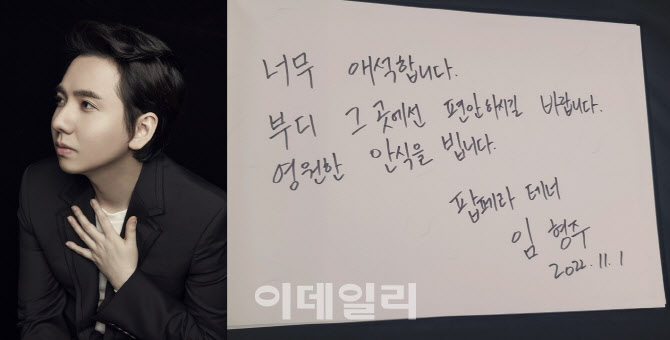 너무 애석합니다.
부디 그 곳에선 편안하시길 바랍니다.
영원한 안식을 빕니다.
팝페라 테너
임 형주
2022. 11. 1
이데일리